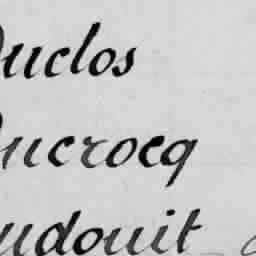 Duclos
Ducrocq
udouit